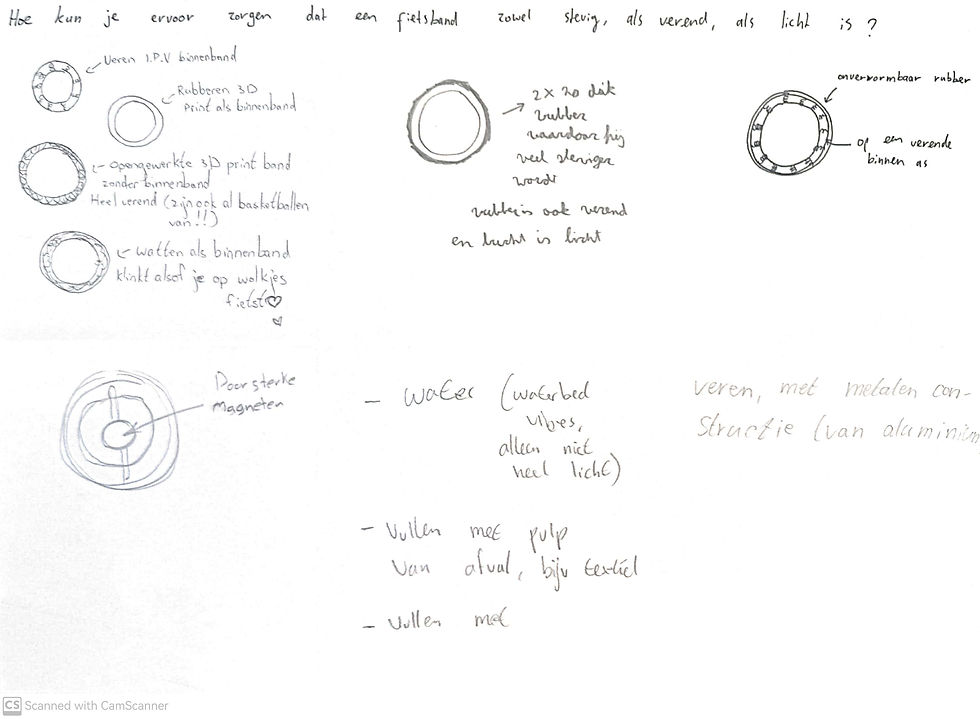 Hoe kun je ervoor zorgen dat een fietsband zowel stevig, als verend, als licht is?
Veren I.P.V binnenband
Rubberen 3D
print als binnenband
Opengewerkte 3D print band
zonder binnenband
Heel verend (zijn ook al basketballen
van!!)
watten als binnenband
klinkt alsof je op wolkjes
fietst
2x zo dik
rubber
waardoor hij
veel steviger
wordt
rubber is ook verend
en lucht is licht
onvervormbaar rubber
op een verende
binnen as
Door sterke
magneten
- water (waterbed
vibes,
alleen niet
heel licht)
- vullen met pulp
van afval, bijv textiel
- vullen met
veren, met metalen con-
structie (van aluminium
CS Scanned with CamScanner